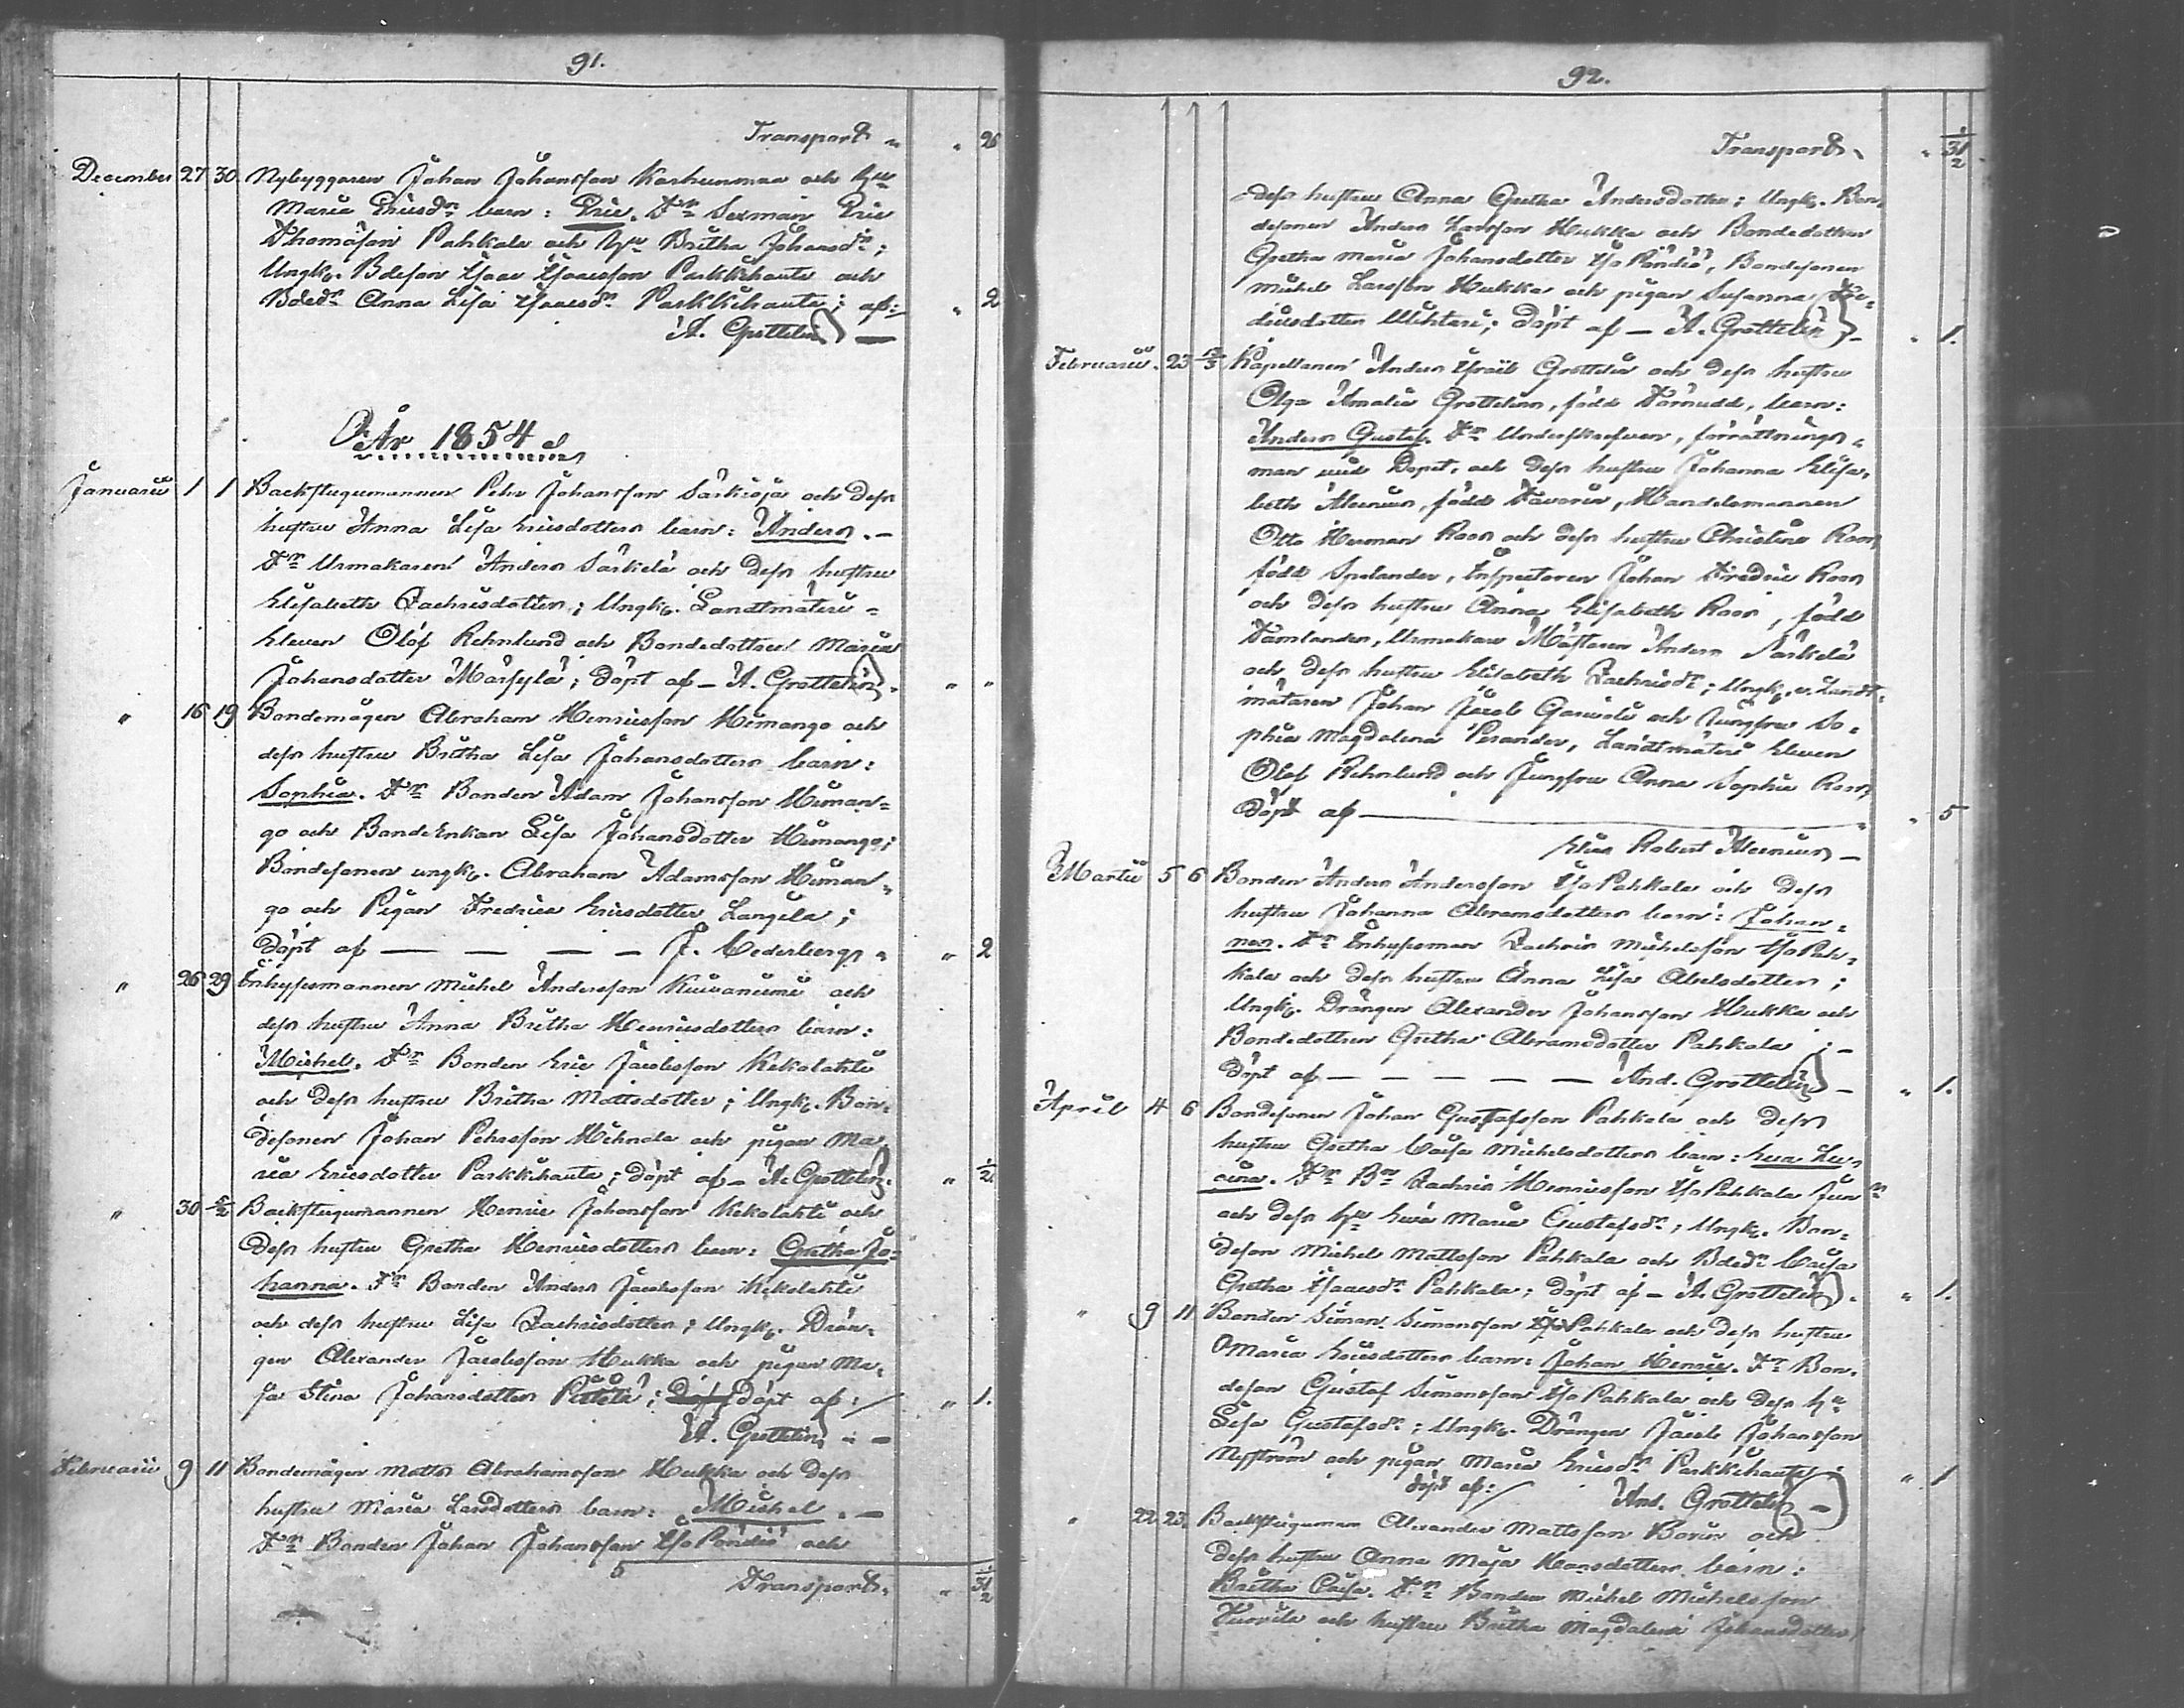 91.
Transport " " 26
December 27 30 Nybyggaren Johan Johansson Karhunmaa och Hu
Maria Ericsdr barn: Eric. Fr Sexman Eric
Thomason Pahkala och Hu Britha Johansdr;
Ungk. Bdeson Isaac Isaacsson Parkkihauta och
Bdedr Anna Lisa Isaacsdr Parkkihauta; af: " 2
A. Grottelin) —
År 1854
Januarii 1 1 Backstugumannen Pehr Johansson Särkioja och dess
hustru Anna Lisa Ericsdotters barn: Anders. —
Fr Urmakaren Anders Särkelä och dess hustru
Elisabeth Zachrisdotter; Ungk. Landtmäteri-
Eleven Olof Rehnlund och Bondedottren Maria
Johansdotter Märsylä; döpt af — A. Grottelin). " "
" 16 19 Bondemågen Abraham Henricsson Himango och
dess hustru Britha Lisa Johansdotters barn:
Sophia. Fr Bonden Adam Johansson Himan-
go och Bonde Enkan Lisa Johansdotter Himango;
Bondesonen ungk. Abraham Adamsson Himan-
go och Pigan Fredrica Ericsdotter Långila;
döpt af — — — — J. Cederberg. " " 2
" 26 29 Inhysesmannen Michel Andersson Kuivaniemi och
dess hustru Anna Britha Henricsdotters barn:
Michel. Fr Bonden Eric Jacobsson Kekolahti
och dess hustru Britha Mattsdotter; Ungk. Bon-
desonen Johan Pehrsson Hihnala och pigan Ma-
ria Ericsdotter Parkkihauta; döpt af — A. Grottelin). " 1/2
" 30 5/2 Backstugumannen Henric Johansson Kekolahti och
dess hustru Gretha Henricsdotters barn: Gretha Jo-
hanna. Fr Bonden Anders Jacobsson Kekolahti
och dess hustru Lisa Zachrisdotter; Ungk. Drän-
gen Alexander Jacobsson Hukka och pigan Ma-
ja Stina Johansdotter; döpt af: " 1.
A. Grottelin) " —
Februarii 9 11 Bondemågen Matts Abrahamsson Hukka och dess
hustru Maria Larsdotters barn: Michel. —
Fr Bonden Johan Johansson Iso Pöndiö och
Transport. " 31 1/2
92.
Transport. " 31 1/2
dess hustru Anna Gretha Andersdotter; Ungk. Bon-
desonen Anders Larsson Hukka och Bondedottren
Gretha Maria Johansdotter Iso Pöndiö, Bondesonen
Michel Larsson Hukka och pigan Susanna Fre-
dricsdotter; döpt af — A. Grottelin) — " 1.
Februarii. 23 5/3 Kapellanen Anders Israël Grottelin och dess hustru
Olga Amalia Grottelins, född Törnudd, barn:
Anders Gustaf. Fr Underskrefven, förrättnings-
man vid Dopet, och dess hustru Johanna Elisa-
beth Alcenius, född Favorin, Handelsmannen
Otto Herman Roos och dess hustru Christina Roos,
född Spolander, Inspectoren Johan Fredric Roos
och dess hustru Anna Elisabeth Roos, född
Tamlander, Urmakare Mästaren Anders Särkelä
och dess hustru Elisabeth Zachrisdr; Ungk. v. Landt-
mätaren Johan Jacob och Jungfru So-
phia Magdalena Perander, Landtmäteri Eleven
Olof Rehnlund och Jungfru Anna Sophia Roos,
döpt af — " " 5
Elias Robert Alcenius —
Martii 5 6 Bonden Anders Andersson Iso Pahkala och dess
hustru Johanna Abramsdotters barn: Johan-
nes. Fr Inhysesman Zachris Michelsson Iso Pah-
kala och dess hustru Anna Lisa Abelsdotter;
Ungk. Drängen Alexander Johansson Hukka och
Bondedottren Gretha Abramsdotter Pahkala; —
döpt af — — — — — And. Grottelin) — " 1.
April 4 6 Bondesonen Johan Gustafsson Pahkala och dess
hustru Gretha Caisa Michelsdotters barn: Eva Lu-
cina. Fr Bn Zachris Henricsson Iso Pahkala Junr
och dess Hu Eva Maria Gustafsdr; Ungk. Bon-
deson Michel Mattsson Pahkala och Bdedr Caisa
Gretha Isaacsdr Pahkala; döpt af — A. Grottelin). " 1.
" 9 11 Bonden Simon Simonsson Iso Pahkala och dess hustru
Maria Ericsdotters barn: Johan Henric. Fr Bon-
deson Gustaf Simonsson Iso Pahkala och dess Hu
Lisa Gustafsdr; Ungk. Drängen Jacob Johansson
Nyström och pigan Maria Ericsdr Parkkihauta; " 1
döpt af: And. Grottelin —)
" 22 23. Backstuguman Alexander Mattsson Borin och
dess hustru Anna Maja Hansdotters barn:
Britha Caisa. Fr Bonden Michel Michelsson
Tuorila och hustru Britha Magdalena Johansdotter,